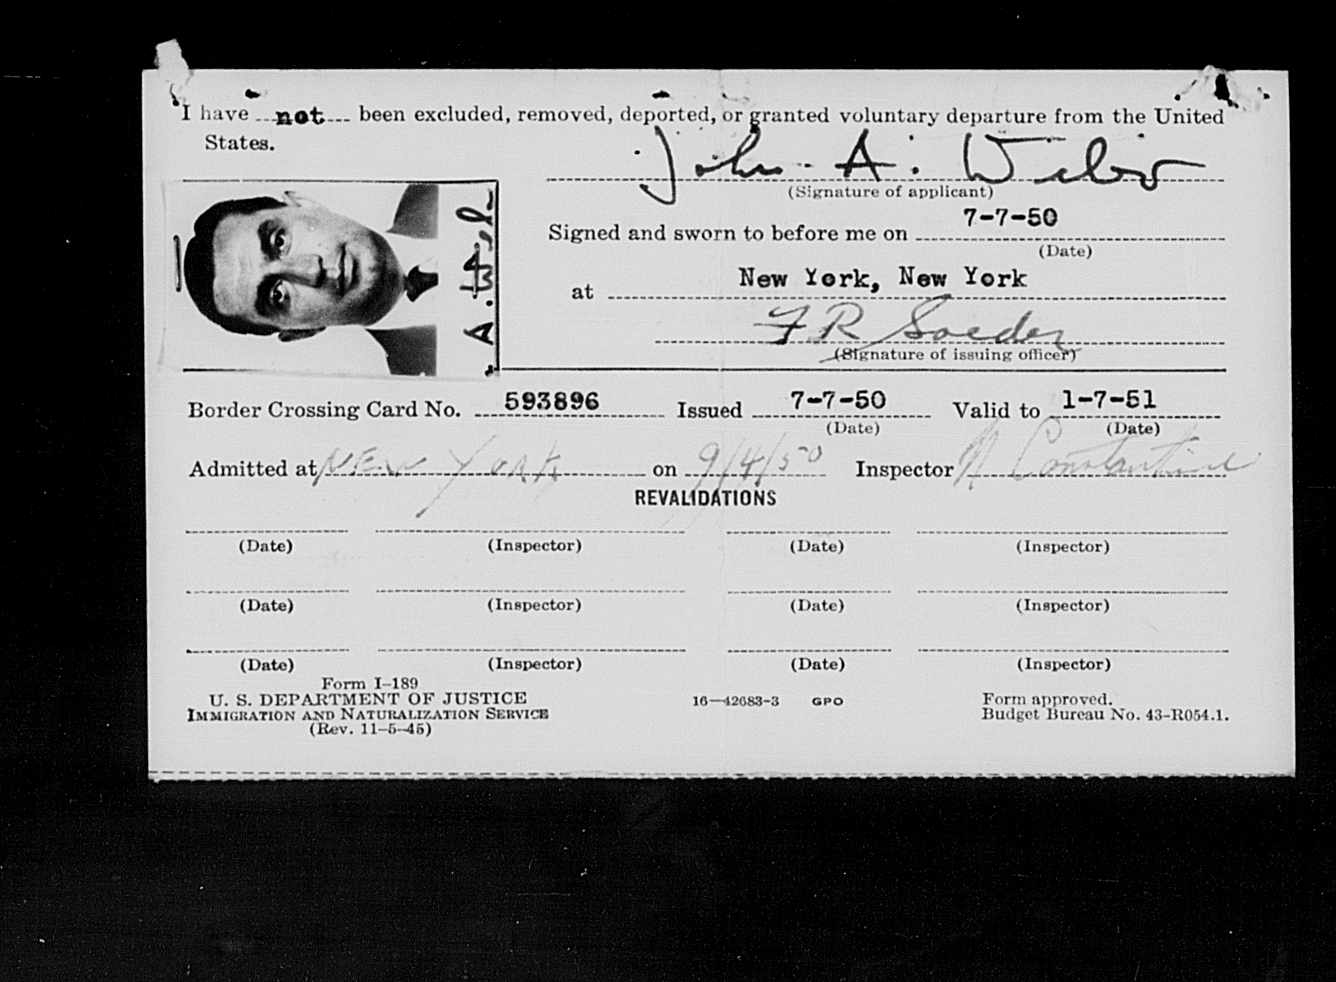 I have not been excluded, removed, deported, or granted voluntary departure from the United
States.
John A. Weber
(Signature of applicant)
7-7-50
Signed and sworn to before me on
(Date)
New York, New York
at
F R Soeder
(Signature of issuing officer)
Border Crossing Card No. 593896 Issued 7-7-50 Valid to 1-7-51
(Date) (Date)
Admitted at New York on 9/4/50 Inspector N Constantine
REVALIDATIONS
(Date) (Inspector) (Date) (Inspector)
(Date) (Inspector) (Date) (Inspector)
(Date) (Inspector) (Date) (Inspector)
Form I-189
U. S. DEPARTMENT OF JUSTICE
IMMIGRATION AND NATURALIZATION SERVICE
(Rev. 11-5-45)
16—42683-3 GPO
Form approved.
Budget Bureau No. 43-R054.1.